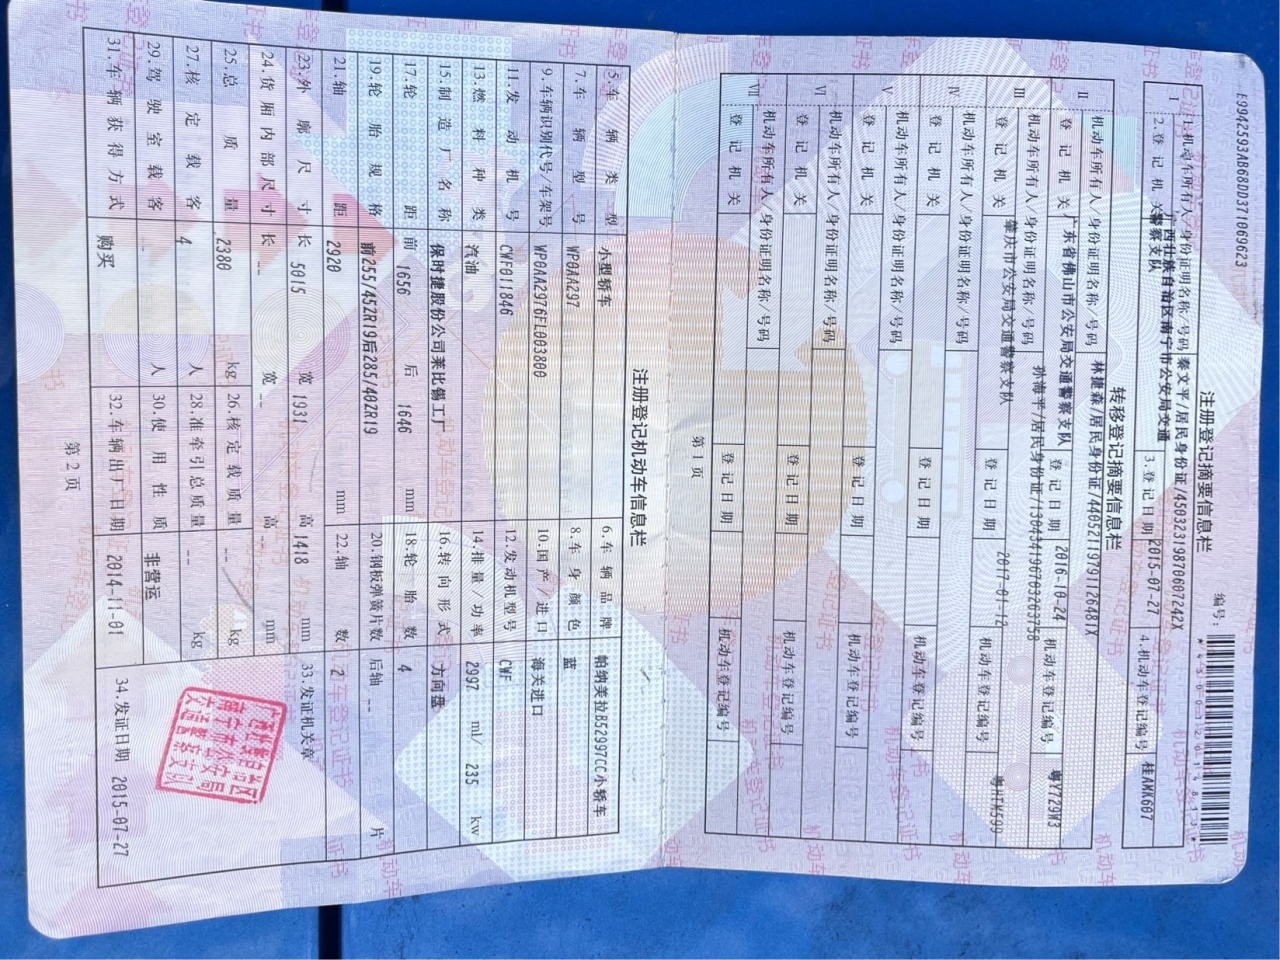 E99425593AB68DD371069623
编号：
注册登记摘要信息栏
I 1.机动车所有人/身份证明名称/号码 秦文平/居民身份证/45032319870607242X
2.登记机关 广西壮族自治区南宁市公安局交通警察支队 3.登记日期 2015-07-27 4.机动车登记编号 桂AMK607
转移登记摘要信息栏
II 机动车所有人/身份证明名称/号码 林捷森/居民身份证/44052119791126481X
登记机关 广东省佛山市公安局交通警察支队 登记日期 2016-10-24 机动车登记编号 粤Y729W3
III 机动车所有人/身份证明名称/号码 孙海平/居民身份证/130434196703263759
登记机关 肇庆市公安局交通警察支队 登记日期 2017-01-12 机动车登记编号 粤HTM599
IV 机动车所有人/身份证明名称/号码
登记机关 登记日期 机动车登记编号
V 机动车所有人/身份证明名称/号码
登记机关 登记日期 机动车登记编号
VI 机动车所有人/身份证明名称/号码
登记机关 登记日期 机动车登记编号
VII 机动车所有人/身份证明名称/号码
登记机关 登记日期 机动车登记编号
第1页
注册登记机动车信息栏
5.车辆类型 小型轿车 6.车辆品牌 帕纳美拉B52997CC小轿车
7.车辆型号 WP0AA297 8.车身颜色 蓝
9.车辆识别代号/车架号 WP0AA2976FL003800 10.国产/进口 海关进口
11.发动机号 CWF011846 12.发动机型号 CWF
13.燃料种类 汽油 14.排量/功率 2997 ml/ 235 kw
15.制造厂名称 保时捷股份公司莱比锡工厂 16.转向形式 方向盘
17.轮距 前 1656 后 1646 mm 18.轮胎数 4
19.轮胎规格 前255/45ZR19后285/40ZR19 20.钢板弹簧片数 后轴 -- 片
21.轴距 2920 mm 22.轴数 2
23.外廓尺寸 长 5015 宽 1931 高 1418 mm 33.发证机关章
24.货厢内部尺寸 长 -- 宽 -- 高 -- mm
25.总质量 2380 kg 26.核定载质量 -- kg
27.核定载客 4 人 28.准牵引总质量 -- kg
29.驾驶室载客 -- 人 30.使用性质 非营运
31.车辆获得方式 购买 32.车辆出厂日期 2014-11-01 34.发证日期 2015-07-27
第2页